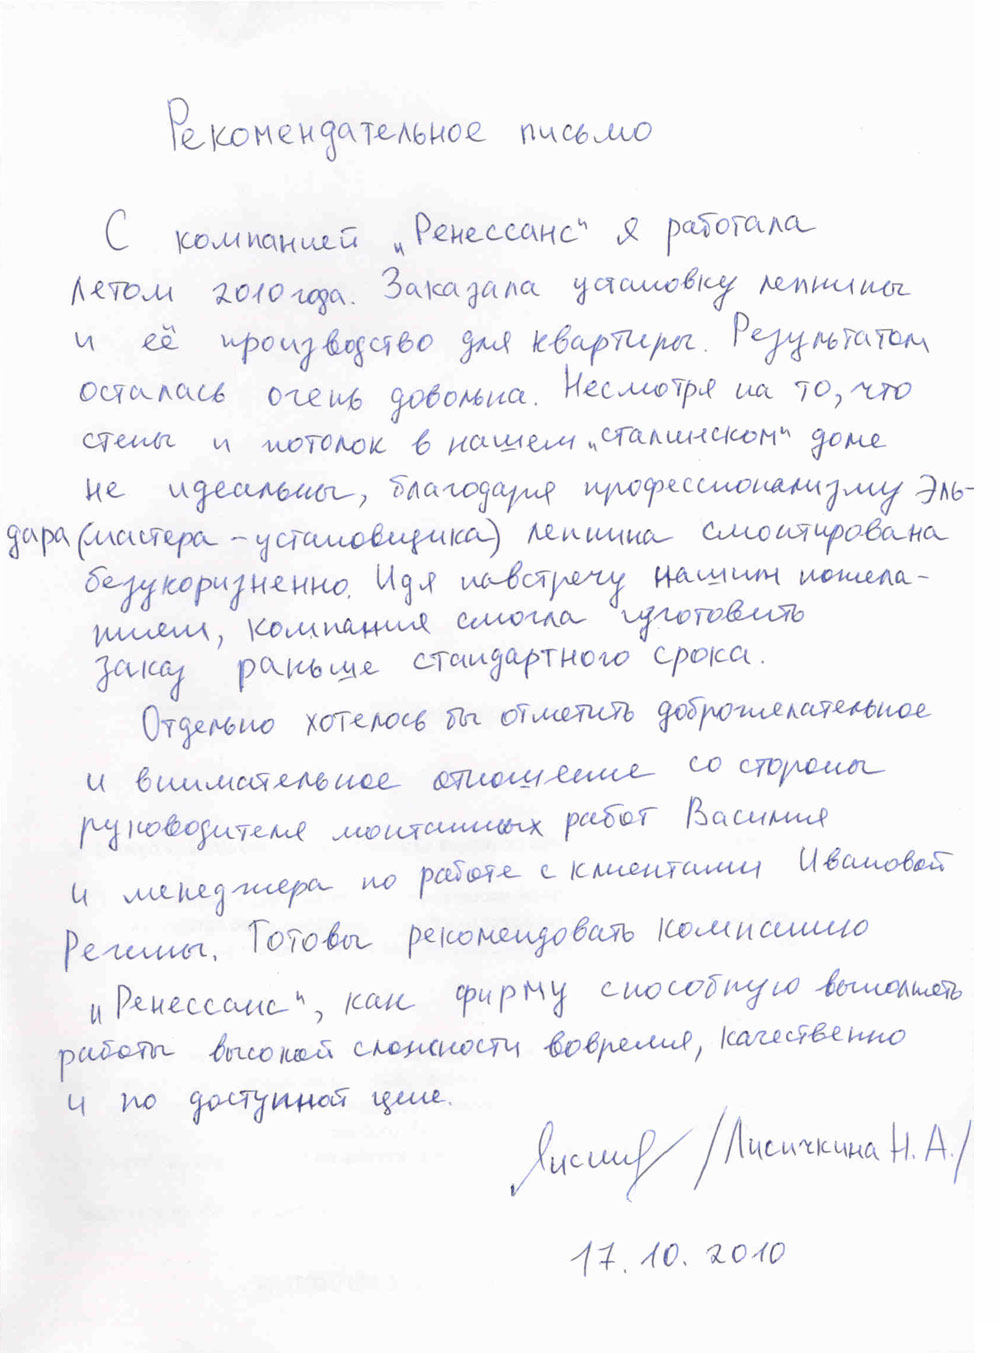 Рекомендательное письмо
С компанией „Ренессанс“ я работала
летом 2010 года. Заказала установку лепнины
и её производство для квартиры. Результатом
осталась очень довольна. Несмотря на то, что
стены и потолок в нашем „сталинском“ доме
не идеальны, благодаря профессионализму Эль-
дара (мастера-установщика) лепнина смонтирована
безукоризненно. Идя навстречу нашим пожела-
ниям, компания смогла изготовить
заказ раньше стандартного срока.
Отдельно хотелось бы отметить доброжелательное
и внимательное отношение со стороны
руководителя монтажных работ Василия
и менеджера по работе с клиентами Ивановой
Регины. Готовы рекомендовать компанию
„Ренессанс“, как фирму способную выполнять
работы высокой сложности вовремя, качественно
и по доступной цене.
/Лисичкина Н. А./
17.10.2010